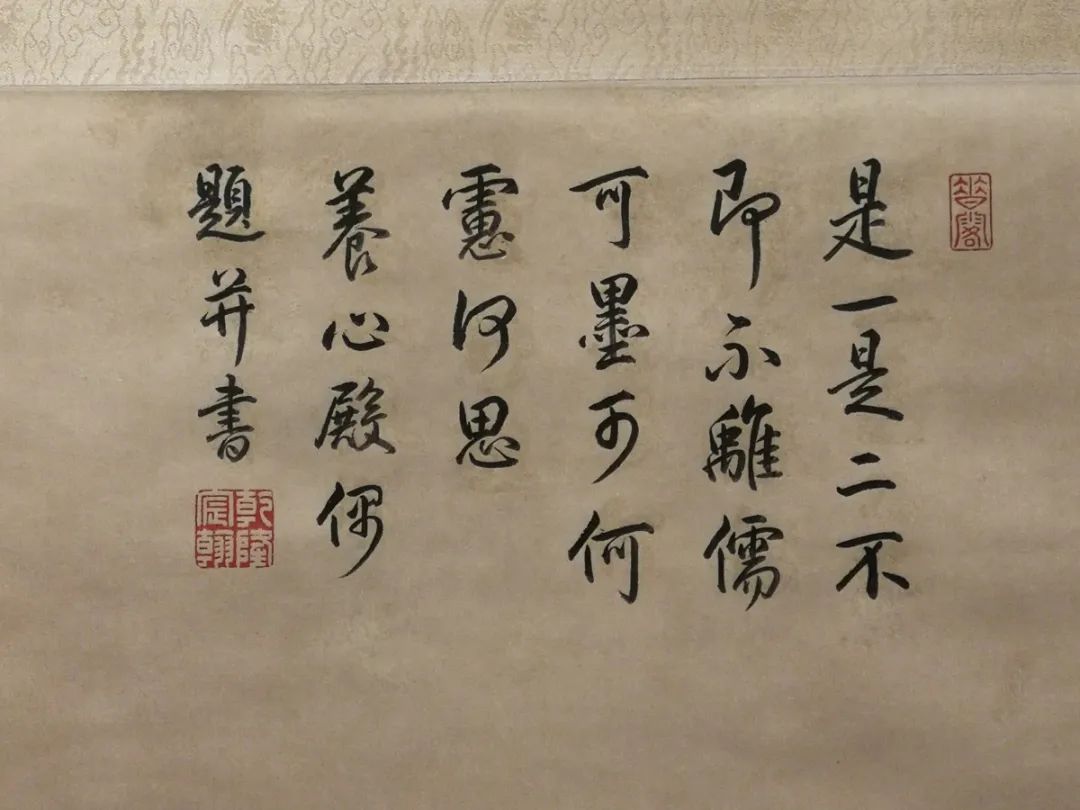 是一是二不
即不離儒
可墨可何
慮何思
養心殿偶
題并書
乾隆
宸翰